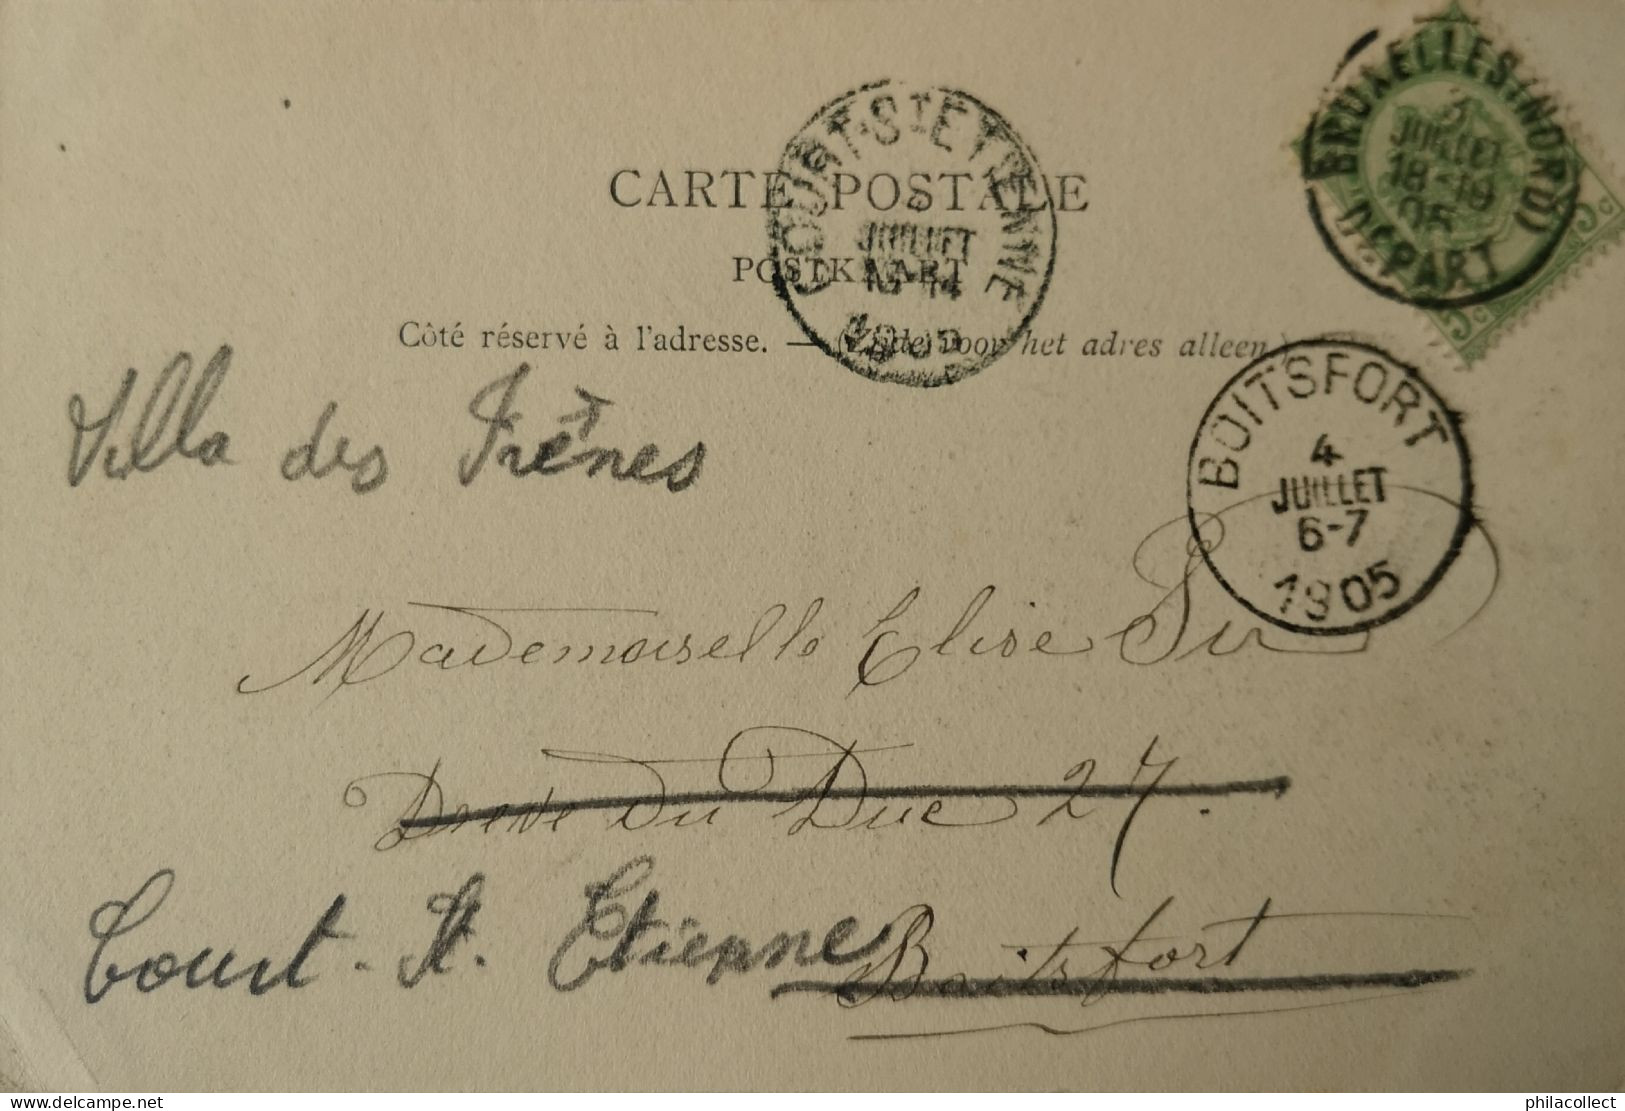 BRUXELLES (NORD)
3
JUILLET
18-19
05
DÉPART
5 c
5 c
COURT-ST-ETIENNE
4
JUILLET
1905
CARTE POSTALE
POSTKAART
Côté réservé à l'adresse. — (Zijde voor het adres alleen.)
BOITSFORT
4
JUILLET
6-7
1905
Villa des Frênes
Mademoiselle Elise
Dreve du Duc 27.
Court. St. Etienne
Boitsfort
delcampe.net
philacollect